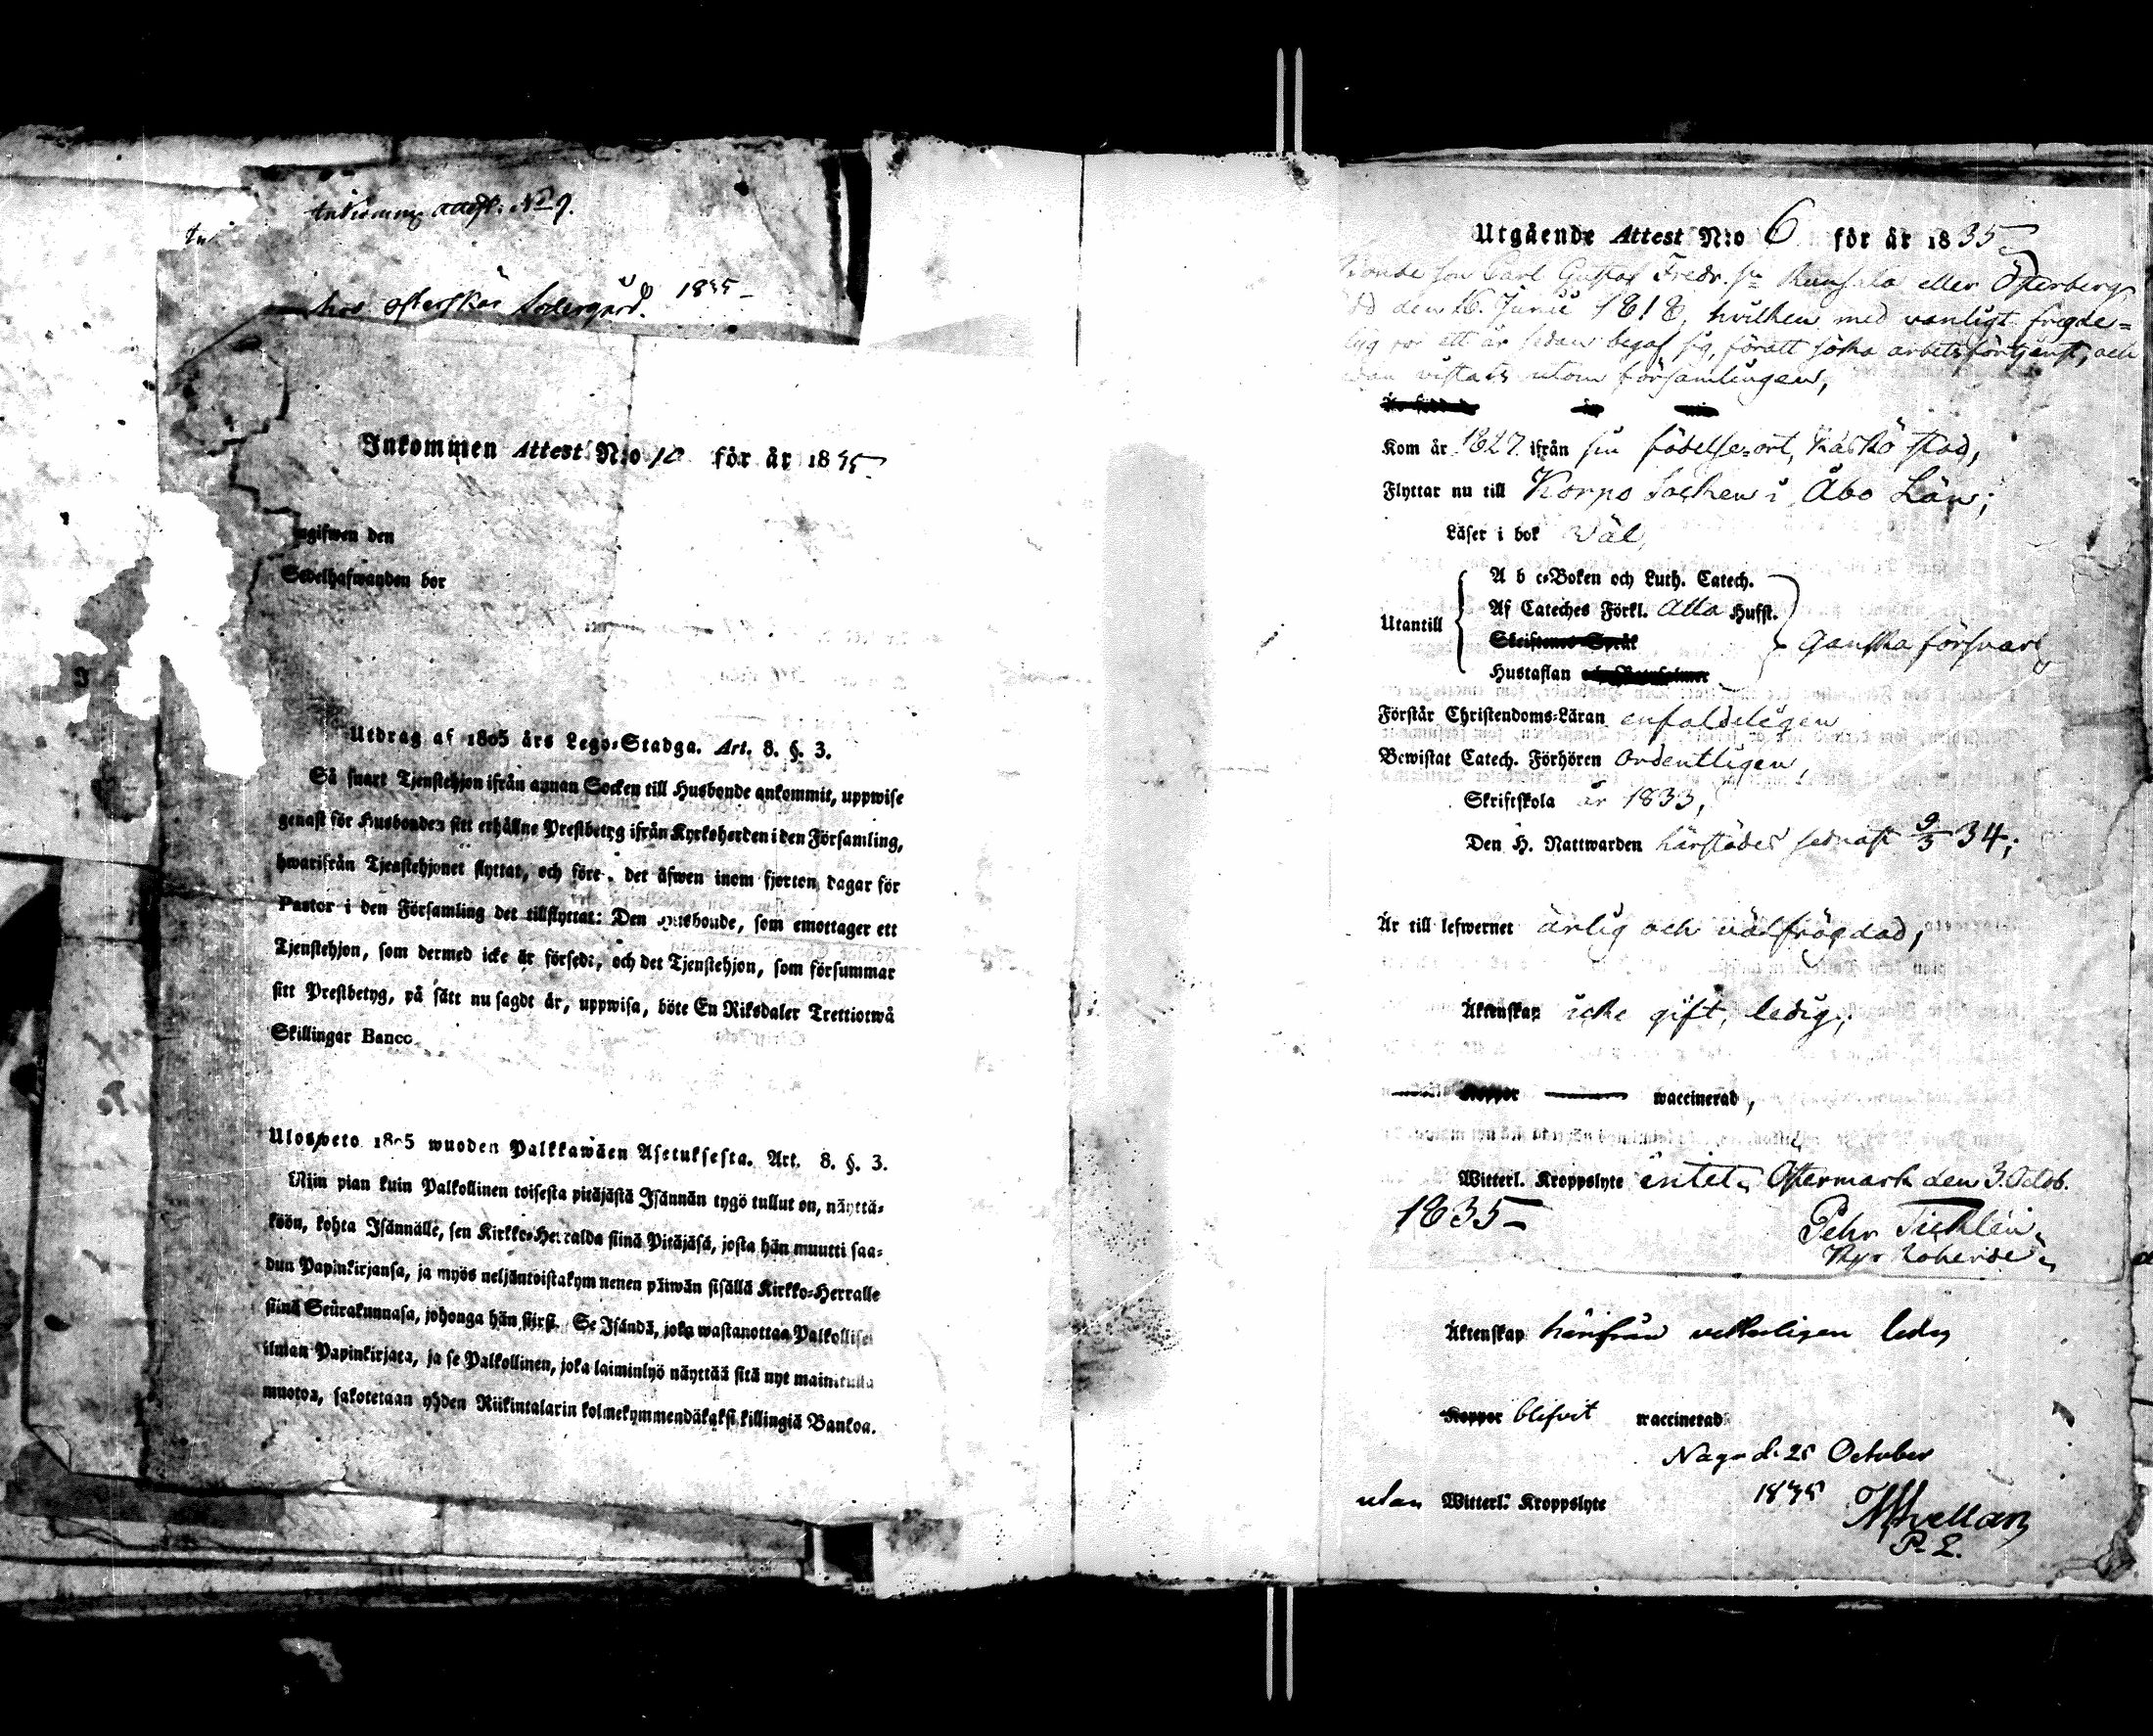 Inkomm. attest. No 9.
hos Österskär Södergård. 1835
Inkommen Attest N:o 10 för år 1835
ngifwen den
Sedelhafwanden bor
Utdrag af 1805 års Lego-Stadga. Art. 8. §. 3.
Så snart Tjenstehjon ifrån annan Socken till Husbonde ankommit, uppwise
genast för Husbonden sitt erhållne Prestbetyg ifrån Kyrkoherden i den Församling,
hwarifrån Tjenstehjonet flyttat, och före det äfwen inom fjorton dagar för
Pastor i den Församling det tillflyttat: Den Husbonde, som emottager ett
Tjenstehjon, som dermed icke är försedt, och det Tjenstehjon, som försummar
sitt Prestbetyg, på sätt nu sagdt är, uppwisa, böte En Riksdaler Trettiotwå
Skillingar Banco
Ulosweto 1805 wuoden Palkkawäen Asetuksesta. Art. 8. §. 3.
Niin pian kuin Palkollinen toisesta pitäjästä Isännän tygö tullut on, näyttä-
köön, kohta Isännälle, sen Kirkko-Herralda siinä Pitäjäsä, josta hän muutti saa-
dun Papinkirjansa, ja myös neljäntoistakymnenen päiwän sisällä Kirkko-Herralle
siinä Seurakunnasa, johonga hän siirsi. Se Isändä, joka wastanottaa Palkollisen
ilman Papinkirjata, ja se Palkollinen, joka laiminlyö näyttää sitä nyt mainitulla
muotoa, sakotetaan yhden Riikintalarin kolmekymmendäkaksi killingiä Bankoa.
Utgående Attest N:o 6 för år 1835
Bonde son Carl Gustaf Fredr. sn eller Österberg
den 16. Junii 1818, hvilken med vanligt frägde=
för ett år sedan begaf sig, för att söka arbetsförtjenst, och
vistats utom församlingen,
Kom år 1827 ifrån sin födelse=ort, Kaskö stad,
Flyttar nu till Korpo Socken i Åbo Län;
Läser i bok Väl,
Utantill
A b c-Boken och Luth. Catech.
Af Cateches Förkl. Alla Hufst.
Hustaflan
Ganska försvarl
Förstår Christendoms-Läran enfaldeligen
Bewistat Catech. Förhören ordentligen,
Skriftskola år 1833,
Den H. Nattwarden härstädes sednast 9/3 34;
Är till lefwernet ärlig och välfrägdad,
Äktenskap icke gift, ledig;
waccinerad,
Witterl. Kroppslyte intet. Östermark den 3. Octob.
1835
Pehr
Kyrkoherde
Äktenskap härifrån vetterligen ledig
Koppor blifvit waccinerad
Nagu d. 25 October
utan Witterl. Kroppslyte 1835
P. L.